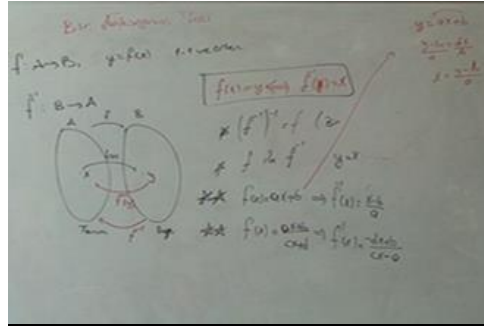 Bir fonksiyonun Tersi
f: A→B, y=f(x)
f⁻¹: B→A
A f B
f(x)
x y
f⁻¹(y)
f⁻¹
f(x)=y ⟺ f⁻¹(y)=x
* (f⁻¹)⁻¹=f
* f ile f⁻¹ y=x
** f(x)=ax+b ⟹ f⁻¹(x)=x-b/a
** f(x)=ax+b/cx+d ⟹ f⁻¹(x)=-dx+b/cx-a
y=ax+b
y-b/a=ax/a
x=y-b/a